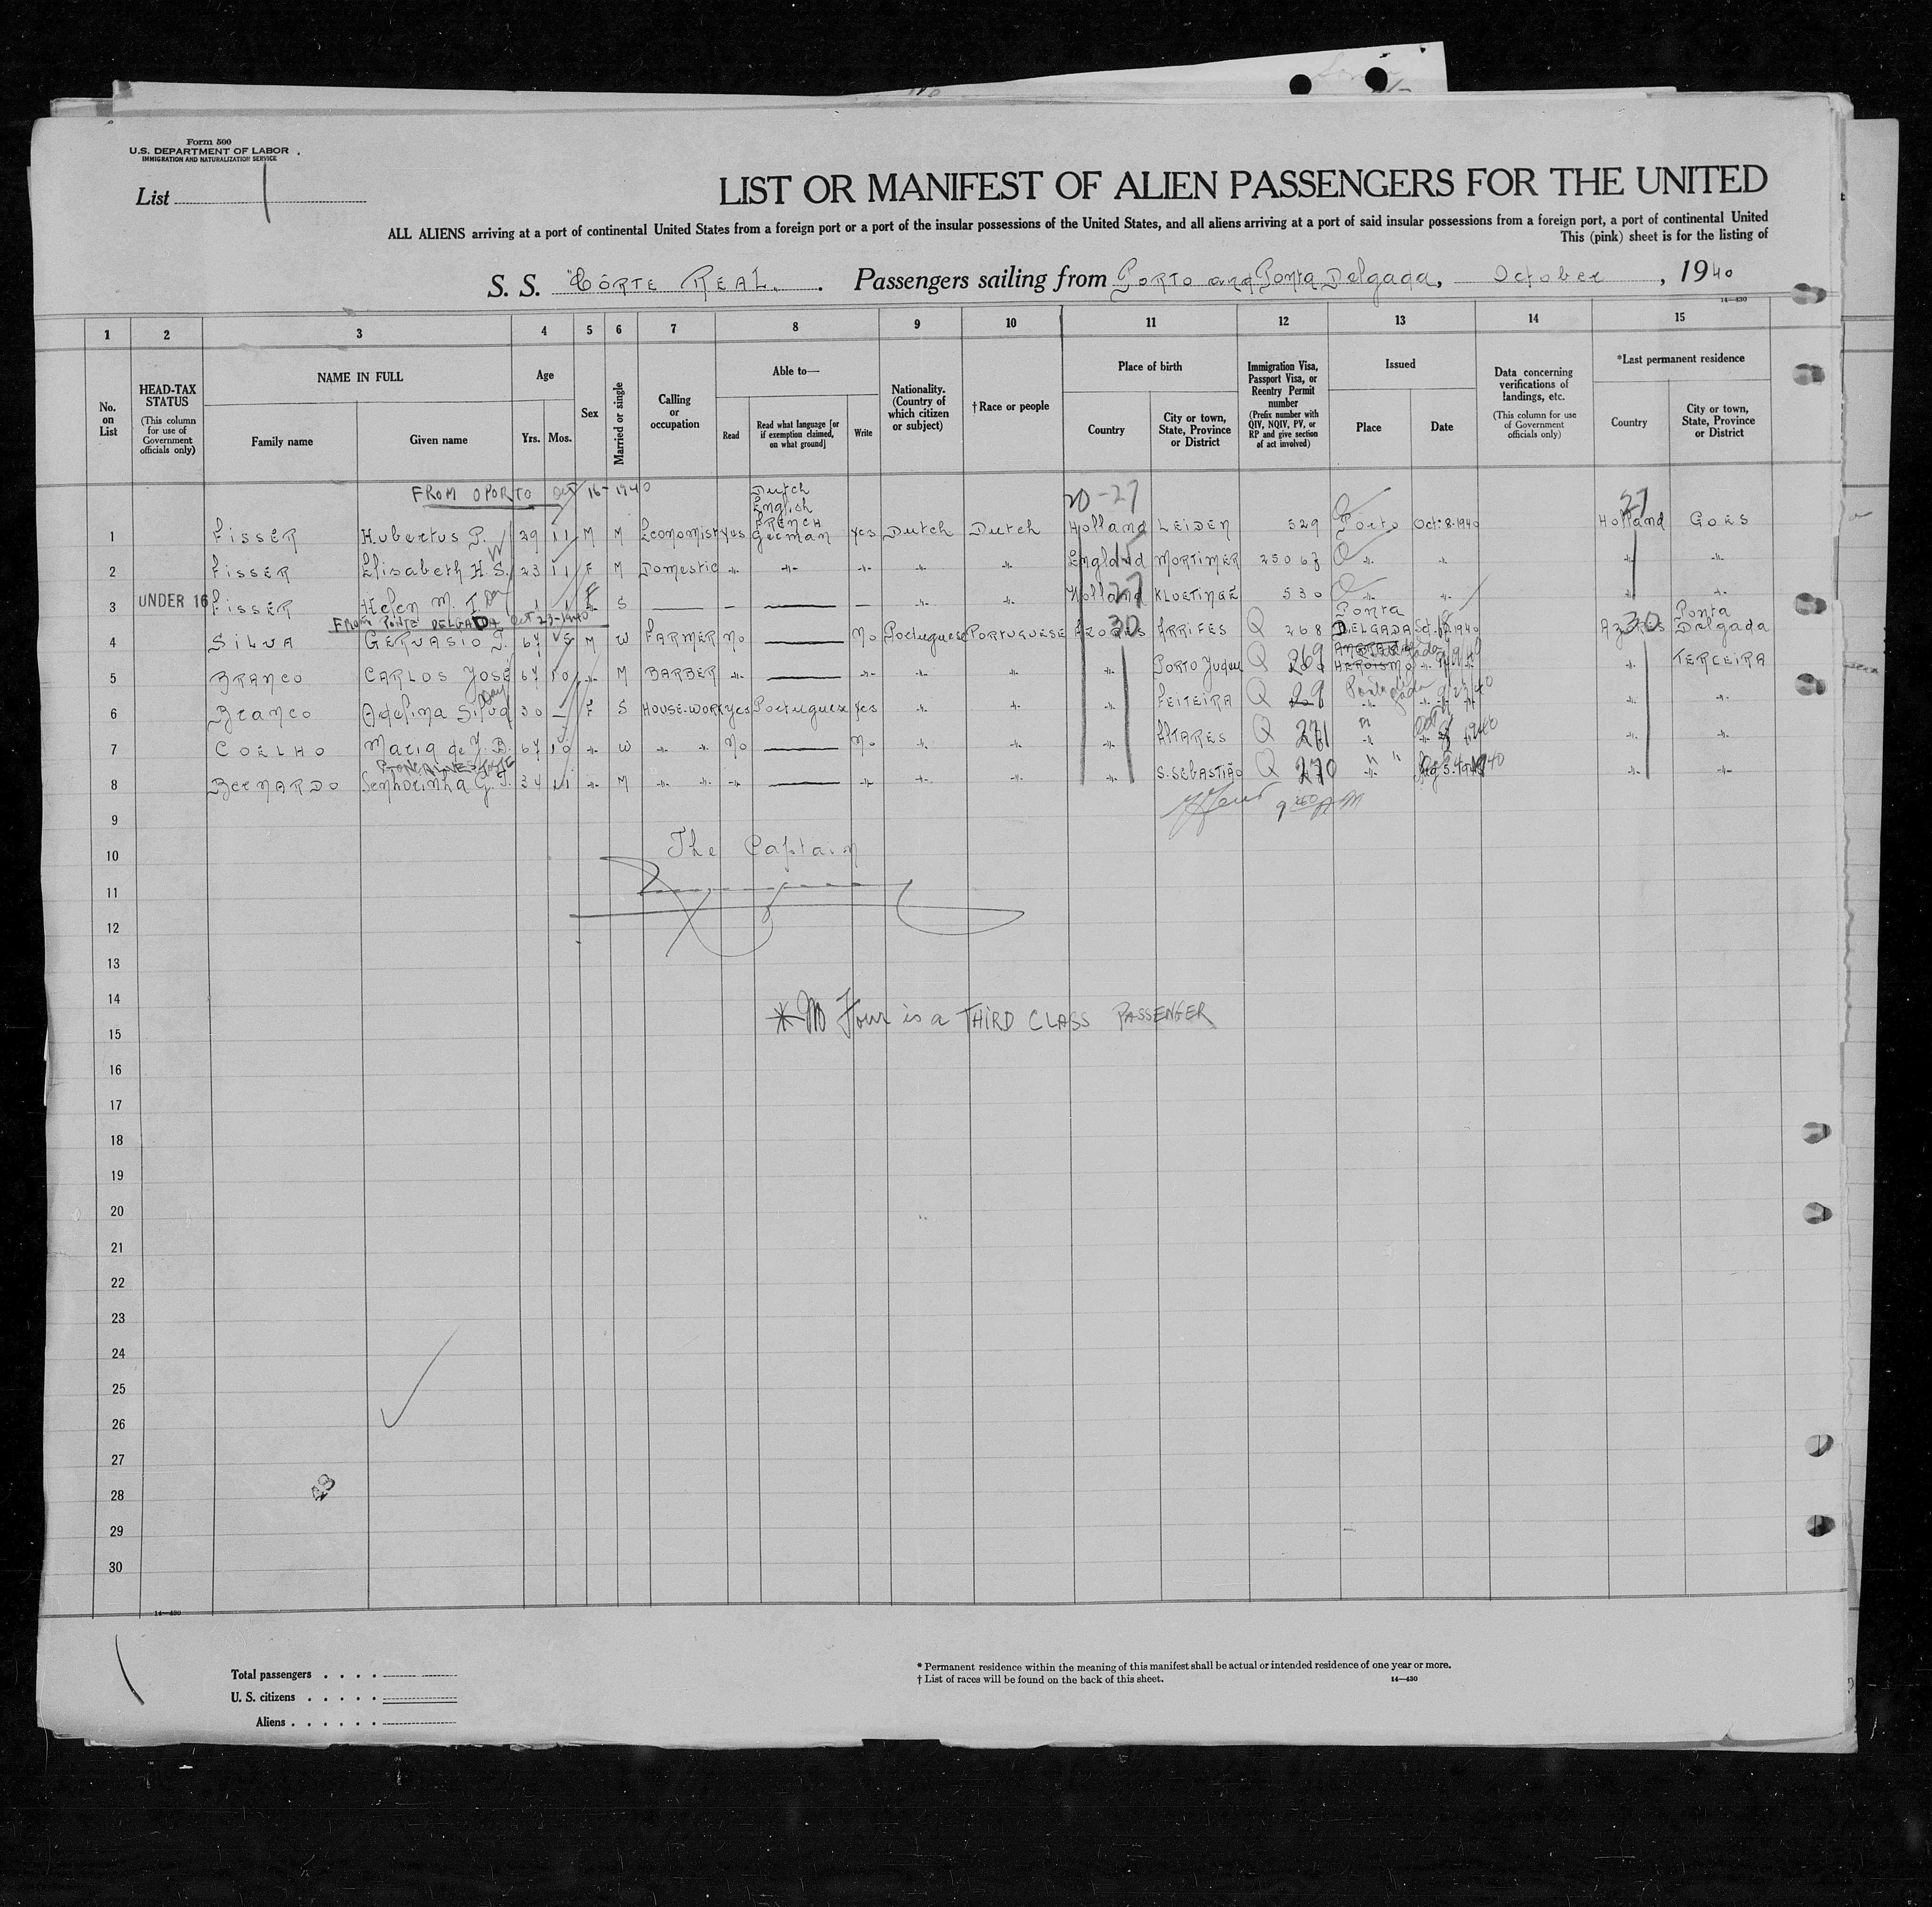 Form 500
U.S. DEPARTMENT OF LABOR
IMMIGRATION AND NATURALIZATION SERVICE
List 1
LIST OR MANIFEST OF ALIEN PASSENGERS FOR THE UNITED
ALL ALIENS arriving at a port of continental United States from a foreign port or a port of the insular possessions of the United States, and all aliens arriving at a port of said insular possessions from a foreign port, a port of continental United
This (pink) sheet is for the listing of
S. S. "CÔRTE REAL. Passengers sailing from PORTO and Ponta Delgada, October, 1940
14—430
1 2 3 4 5 6 7 8 9 10 11 12 13 14 15
No. on List
HEAD-TAX STATUS (This column for use of Government officials only)
NAME IN FULL
Family name Given name
Age
Yrs. Mos.
Sex
Married or single
Calling or occupation
Able to—
Read
Read what language [or if exemption claimed, on what ground]
Write
Nationality. (Country of which citizen or subject)
†Race or people
Place of birth
Country
City or town, State, Province or District
Immigration Visa, Passport Visa, or Reentry Permit number (Prefix number with QIV, NQIV, PV, or RP and give section of act involved)
Issued
Place Date
Data concerning verifications of landings, etc. (This column for use of Government officials only)
*Last permanent residence
Country
City or town, State, Province or District
FROM OPORTO OCT 16-1940
20-27 27
1 FISSER Hubertus P. 29 11 M M Economist Yes Dutch English FRENCH German Yes Dutch Dutch Holland LEIDEN 529 Porto Oct: 8-1940 Holland GOES
2 FISSER Elisabeth H.S. W 23 11 F M Domestic -"- -"- -"- -"- -"- England MORTIMER 25063 -"- -"- -"- -"-
3 UNDER 16 FISSER Helen M. I. F S — — — -"- -"- Holland 27 KLOETINGE 530 -"- -"- -"- -"-
FROM PONTA DELGADA OCT 23-1940
4 SILVA GERVASIO 67 M W FARMER No — No Portuguese PORTUGUESE AZORES 30 ARRIFES Q 268 PONTA DELGADA 1940 AZORES 30 Ponta Delgada
5 BRANCO CARLOS JOSÉ 67 10 -"- M BARBER -"- — -"- -"- -"- -"- PORTO Judeu Q 269 -"- TERCEIRA
6 Branco Adelina Silva 30 — F S HOUSE-WORK Yes Portuguese Yes -"- -"- -"- FEITEIRA Q -"- -"-
7 COELHO Maria de J. B. 67 10 -"- W -"- -"- No — No -"- -"- -"- ALTARES Q 271 -"- 1940 -"- -"-
8 BERNARDO Senhorinha G. J. 34 11 -"- M -"- -"- -"- — -"- -"- -"- -"- S. SEBASTIÃO Q 270 -"- -"- -"-
9
10
11
12
13
14
15
16
17
18
19
20
21
22
23
24
25
26
27
28
29
30
The Captain
* Four is a THIRD CLASS PASSENGER
14—430
Total passengers
U. S. citizens
Aliens
* Permanent residence within the meaning of this manifest shall be actual or intended residence of one year or more.
† List of races will be found on the back of this sheet.
14—430